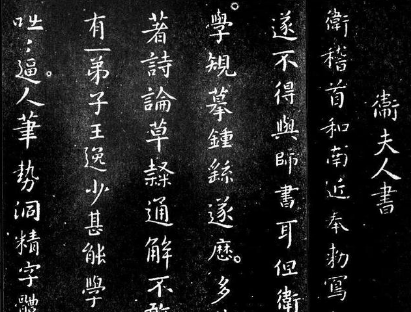 衞夫人書
衛稽首和南近奉勑寫
遂不得與師書耳但衛
學規摹鍾繇遂歷多
著詩論草隸通解不敢
有一弟子王逸少甚能學
咄咄逼人筆勢洞精字體